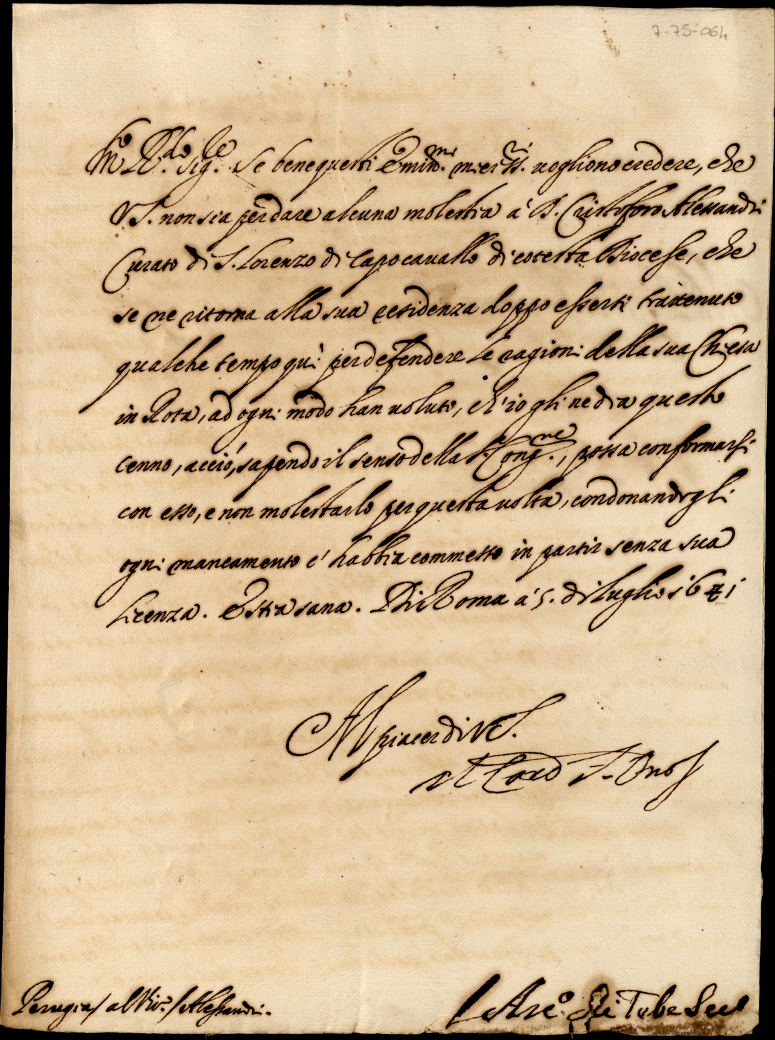 7-75-064
M.to R.do Sig.re Se bene questi Emin.mi miei SS.ri vogliono credere, che
V.S. non sia per dare alcuna molestia à D. Cristoforo Alessandri
Curato di S. Lorenzo di Capocavallo di cotesta Diocese, che
se ne ritorna alla sua residenza doppo essersi trattenuto
qualche tempo quì per defendere le ragioni della sua Chiesa
in Rota, ad ogni modo han voluto, ch'io gli ne dia questo
cenno, acciò, sapendo il senso della S. Cong.ne, possa conformarsi
con esso, e non molestarlo per questa volta, condonandogli
ogni mancamento c'habbia commesso in partir senza sua
licenza. E stia sana. Di Roma à 5. di luglio 1641
Al piacer di V.S.
Il Card S. Onof
Perugia / al Vic.o / Alessandri.